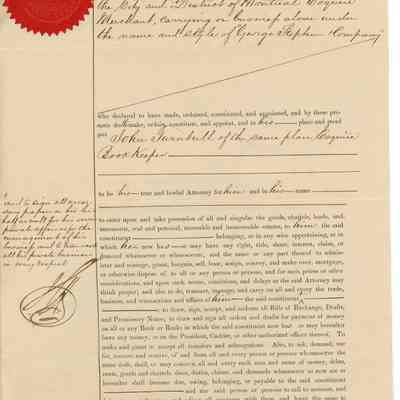 the City and District of Montreal Esquire
Merchant, carrying on business alone under
the name and style of George Stephen Company
who declared to have made, ordained, constituted, and appointed, and by these pre-
sents doth make, ordain, constitute, and appoint, and in his place and stead
put
John Turnbull of the same place, Esquire
Book Keeper
to be his true and lawful Attorney for him and in his name
to enter upon and take possession of all and singular the goods, chattels, lands, and
tenements, real and personal, moveable and immoveable estates, to him the said
constituent belonging, or in any wise appertaining, or in
which he now has or may have any right, title, share, interest, claim, or
demand whatsoever or wheresoever, and the same or any part thereof to admin-
ister and manage, grant, bargain, sell, lease, assign, convey, and make over, mortgage,
or otherwise dispose of, to all or any person or persons, and for such prices or other
considerations, and upon such terms, conditions, and delays as the said Attorney may
think proper; and also to do, transact, manage, and carry on all and every the trade,
business, and transactions and affairs of him the said constituent
to draw, sign, accept, and endorse all Bills of Exchange, Drafts,
and Promissory Notes; to draw and sign all orders and drafts for payment of money
on all or any Bank or Banks in which the said constituent now has or may hereafter
have any money, or on the President, Cashier, or other authorized officer thereof. To
make and grant or accept all transfers and subrogations. Also, to ask, demand, sue
for, recover and receive, of and from all and every person or persons whomsoever the
same doth, shall, or may concern, all and every such sum and sums of money, debts,
rents, goods and chattels, dues, duties, claims, and demands whatsoever as now are or
hereafter shall become due, owing, belonging, or payable to the said constituent
and the said person or persons to call to account, and
and to sign all
papers
behalf
private affairs for the
management of his
business and to
all his private business
in every respect